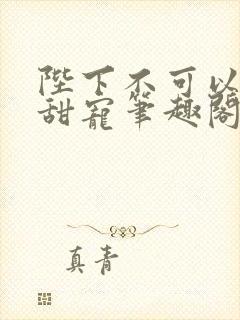 陛下不可以
甜寵筆趣閣
真青